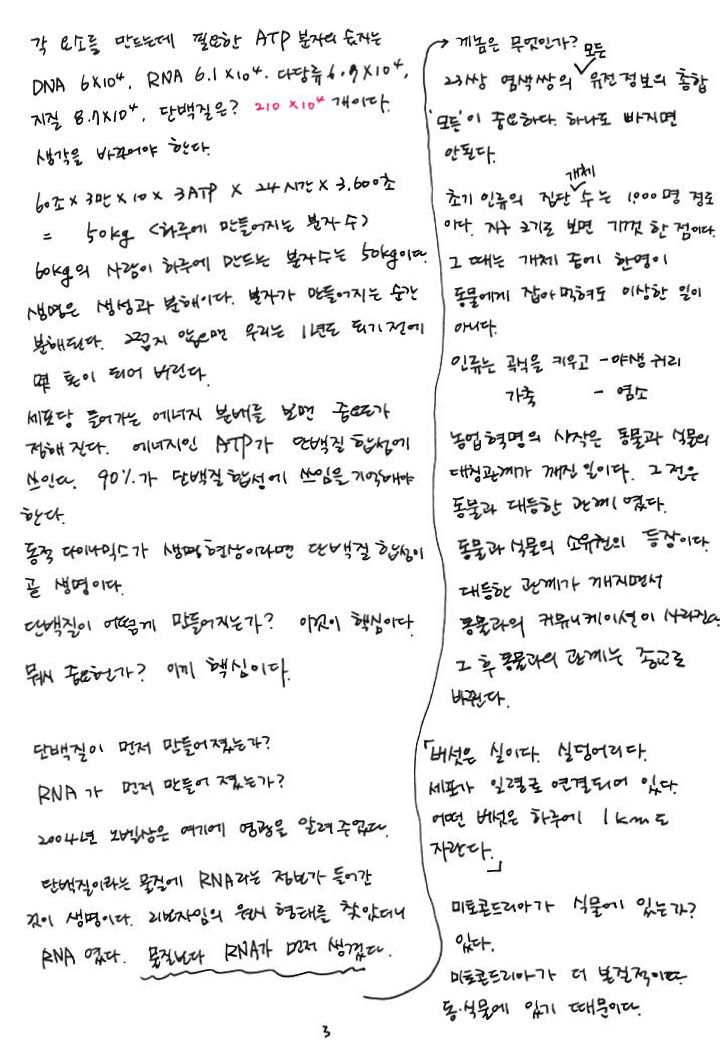 각 요소를 만드는데 필요한 ATP 분자의 숫자는
DNA 6×10⁴, RNA 6.1×10⁴. 다당류 6.9×10⁴,
지질 8.7×10⁴, 단백질은? 210×10⁴ 개이다.
생각을 바꾸어야 한다.
60조×3만×10×3ATP × 24시간×3,600초
= 50kg <하루에 만들어지는 분자 수>
60kg의 사람이 하루에 만드는 분자수는 50kg이다.
생명은 생성과 분해이다. 분자가 만들어지는 순간
분해된다. 그렇지 않으면 우리는 1년도 되기 전에
몇 톤이 되어 버린다.
세포당 들어가는 에너지 분배를 보면 중요도가
정해 진다. 에너지인 ATP가 단백질 합성에
쓰인다. 90%가 단백질 합성에 쓰임을 기억해야
한다.
동적 다이나믹스가 생명현상이라면 단백질 합성이
곧 생명이다.
단백질이 어떻게 만들어지는가? 이것이 핵심이다.
뭐시 중요헌가? 이끼 핵심이다.
단백질이 먼저 만들어졌는가?
RNA가 먼저 만들어 졌는가?
2004년 노벨상은 여기에 영광을 알려 주었다.
단백질이라는 물질에 RNA라는 정보가 들어간
것이 생명이다. 리보자임의 원시 형태를 찾았더니
RNA 였다. 물질보다 RNA가 먼저 생겼다.
→ 게놈은 무엇인가?
23쌍 염색쌍의 모든 유전정보의 총합
'모든'이 중요하다. 하나도 빠지면
안된다.
초기 인류의 집단 개체 수는 1,000명 정도
이다. 지구 크기로 보면 기껏 한 점이다.
그 때는 개체 중에 한명이
동물에게 잡아 먹혀도 이상한 일이
아니다.
인류는 곡식을 키우고 - 야생 귀리
가축 - 염소
농업혁명의 시작은 동물과 식물의
대칭관계가 깨진 일이다. 그 전은
동물과 대등한 관계였다.
동물과 식물의 소유권의 등장이다.
대등한 관계가 깨지면서
동물과의 커뮤니케이션이 사라진다.
그 후 동물과의 관계는 종교로
바뀐다.
「버섯은 실이다. 실덩어리다.
세포가 일렬로 연결되어 있다.
어떤 버섯은 하루에 1km도
자란다.」
미토콘드리아가 식물에 있는가?
있다.
미토콘드리아가 더 본질적이다.
동·식물에 있기 때문이다.
3